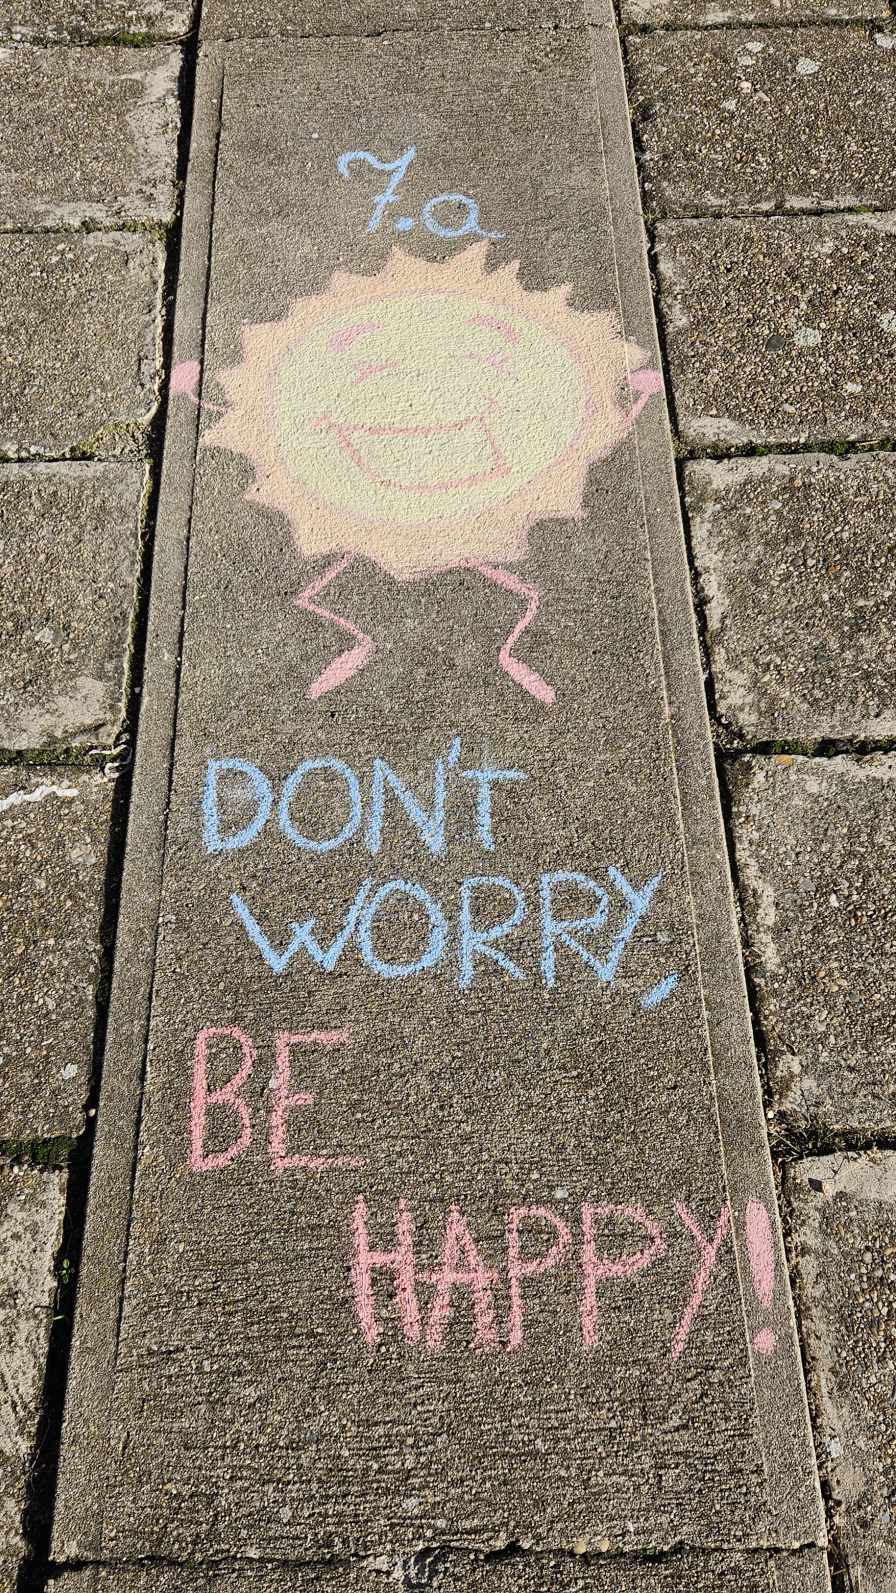 7.a
DON'T
WORRY,
BE
HAPPY!